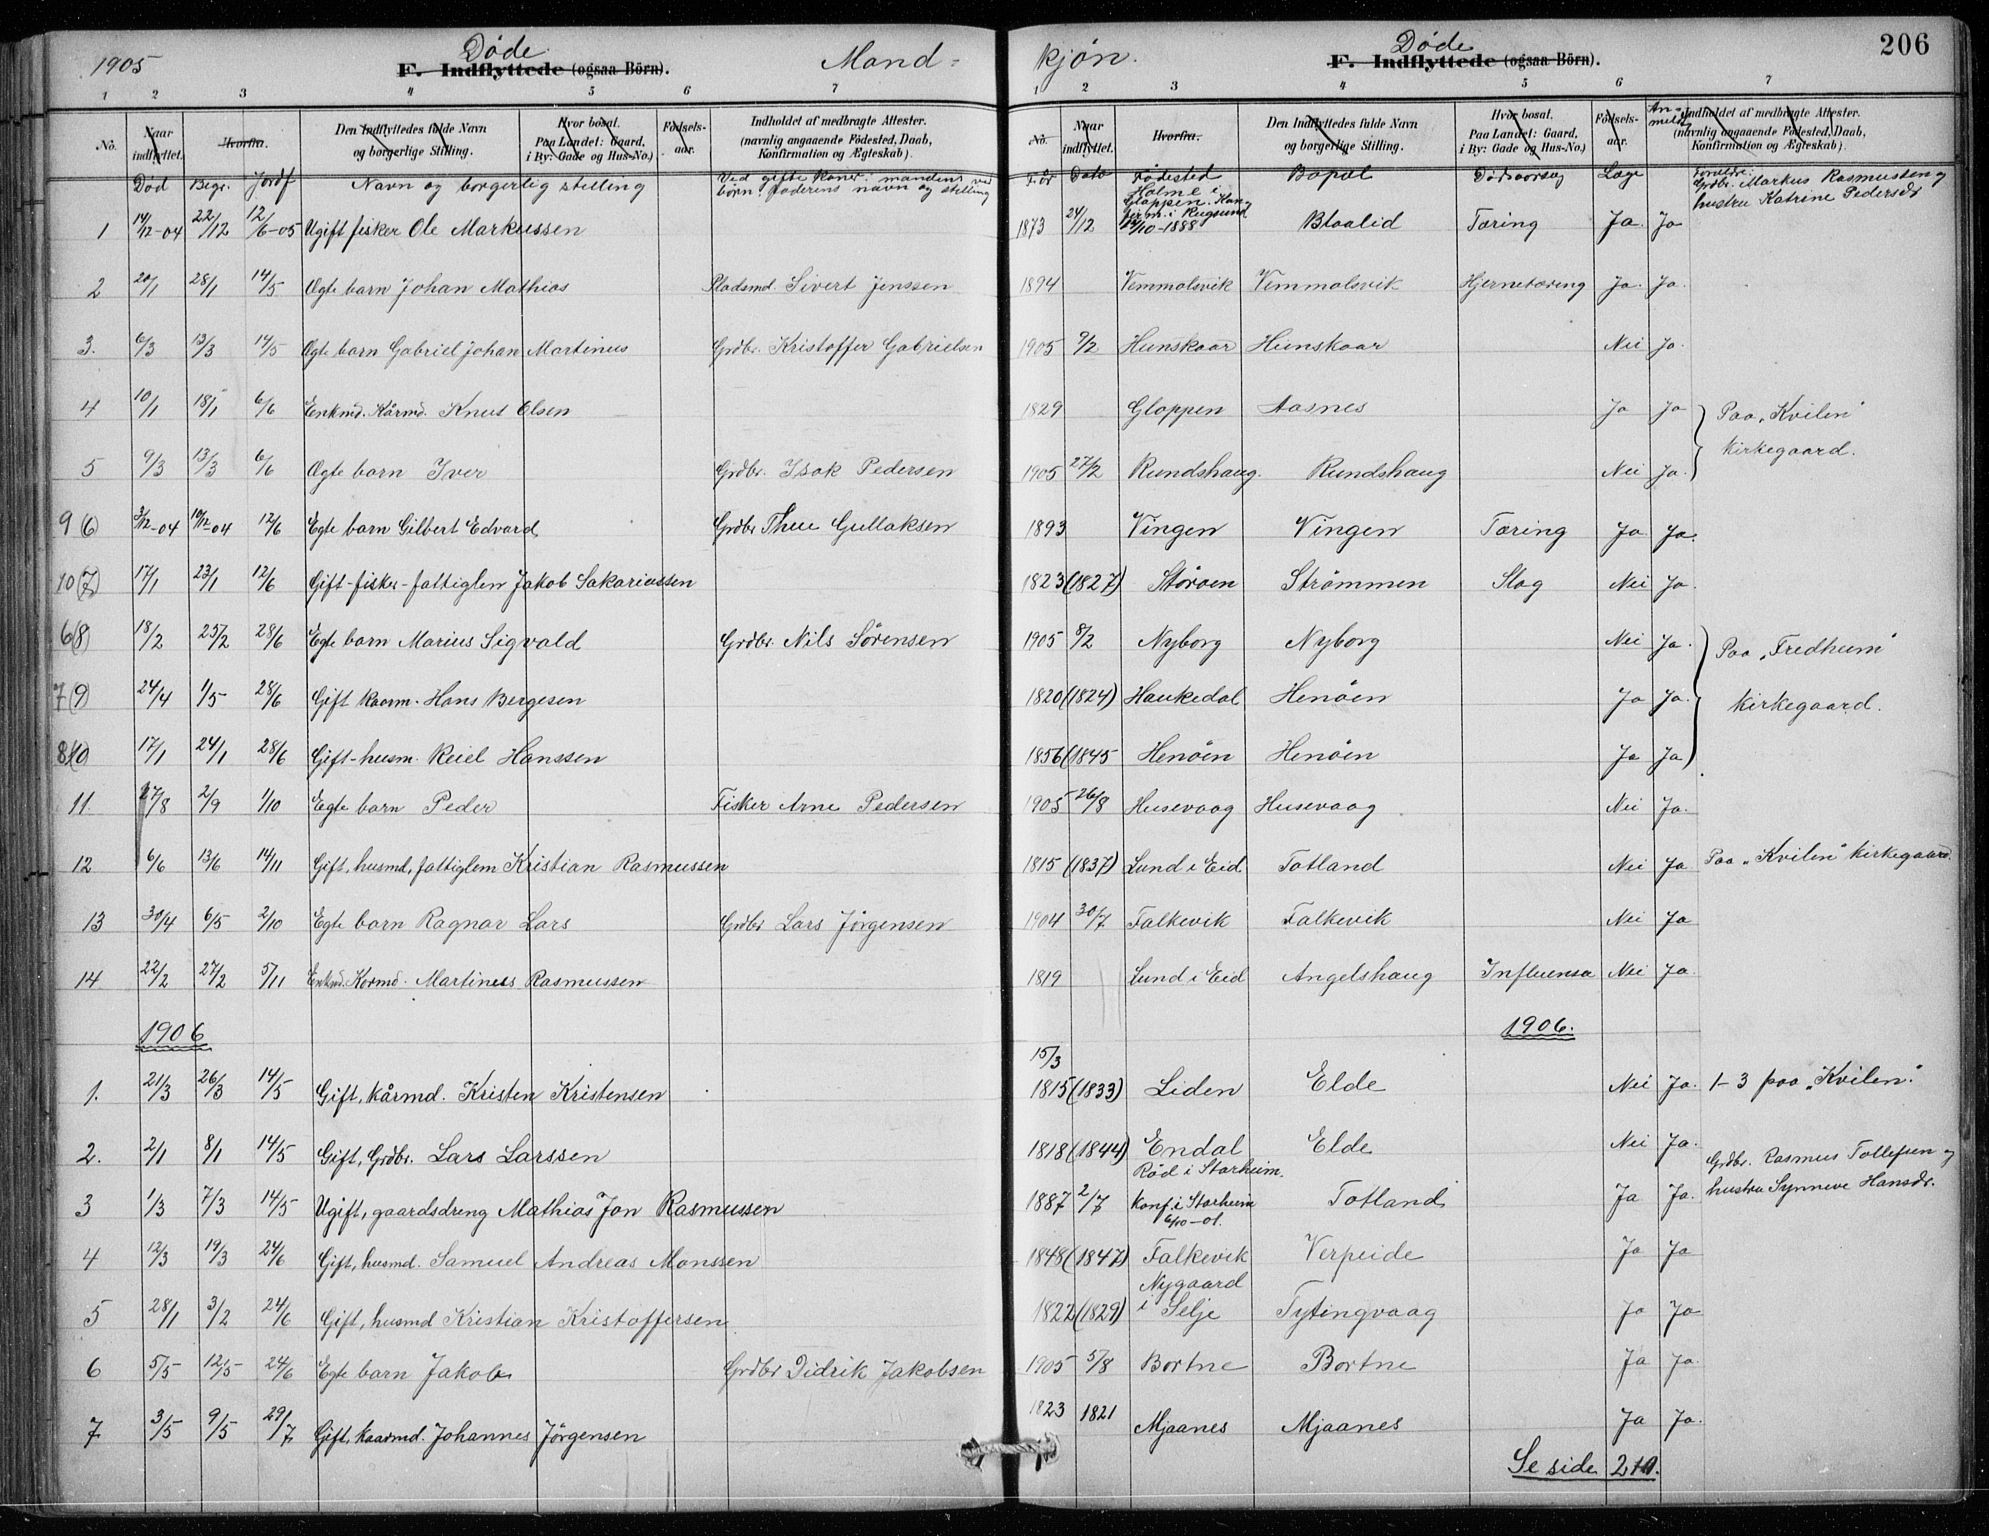 1905 Døde Mand=
F. Indflyttede (ogsaa Börn).
1 2 3 4 5 6 7
No. Naar indflyttet. Hvorfra. Den Indflyttedes fulde Navn og borgerlige Stilling. Hvor bosat. Paa Landet: Gaard, i By: Gade og Hus-No.) Födsels-aar. Indholdet af medbragte Attester. (navnlig angaaende Födested, Daab, Konfirmation og Ægteskab).
Død Begr. Jordf Navn og borgerlig stilling Ved gifte koner: mandens ved
børn: faderens navn og stilling
1 14/12-04 22/12 12/6-05 Ugift fisker Ole Markussen
2 20/1 28/1 14/5 Ægte barn Johan Mathias Pladsmd. Sivert Jenssen
3. 6/3 13/3 14/5 Ægte barn Gabriel Johan Martinus Grdbr. Kristoffer Gabrielsen
4 10/1 18/1 6/6 Enkmd. Kårmd. Knut Olsen
5 9/3 13/3 6/6 Ægte barn Iver Grdbr. Isak Pedersen
9(6) 3/12-04 10/12-04 12/6 Egte barn Gilbert Edvard Grdbr Thue Gullaksen
10(7) 17/1 23/1 12/6 Gift-fisker-fattiglem Jakob Sakariassen
6(8) 18/2 25/2 28/6 Egte barn Marius Sigvald Grdbr. Nils Sørensen
7(9) 24/4 1/5 28/6 Gift kaarm. Hans Bergesen
8(10 17/1 24/1 28/6 Gift-husm. Reiel Hanssen
11. 27/8 2/9 1/10 Egte barn Peder Fisker Arne Pedersen
12 6/6 13/6 14/11 Gift, husmd, fattiglem Kristian Rasmussen
13 30/4 6/5 2/10 Egte barn Ragnar Lars Grdbr Lars Jørgensen
14 22/2 27/2 5/11 Enkmd. Kormd. Martines Rasmussen
1906
1. 21/3 26/3 14/5 Gift, kårmd. Kristen Kristensen
2. 2/1 8/1 14/5 Gift, Grdbr. Lars Larssen
3 1/3 7/3 14/5 Ugift, gaardsdreng Mathias Jon Rasmussen
4 12/3 19/3 24/6 Gift, husmd. Samuel Andreas Monssen
5 28/1 3/2 24/6 Gift, husmd Kristian Kristoffersen
6 5/5 12/5 24/6 Egte barn Jakob Grdbr Didrik Jakobsen
7 3/5 9/5 29/7 Gift, kaarmd. Johannes Jørgensen
kjøn. Døde 206
F. Indflyttede (ogsaa Börn).
1 2 3 4 5 6 7
No. Naar indflyttet. Hvorfra. Den Indflyttedes fulde Navn og borgerlige Stilling. Hvor bosat. Paa Landet: Gaard, i By: Gade og Hus-No.) Födsels-aar. An-meldt Indholdet af medbragte Attester. (navnlig angaaende Födested, Daab, Konfirmation og Ægteskab).
F. år Dato Fødested Bopæl Dødsaarsag Læge Forældre:
Holme i Gloppen. Konfirm. i Rugsund Grdbr. Markus Rasmussen og
hustru Katrine Pedersdr
1873 24/12 14/10-1888 Blaalid Tæring Ja Ja
1894 Vemmolsvik Vemmolsvik Hjernetæring Ja. Ja.
1905 9/2 Hunskaar Hunskaar Nei Ja.
1829 Gloppen Aasnes Ja Ja Paa „Kvilen"
kirkegaard.
1905 27/2 Rundshaug. Rundshaug Nei Ja.
1893 Vingen Vingen Tæring Ja Ja.
1823 (1827) Støroen Strømmen Slag Nei Ja
1905 8/2 Nyborg Nyborg Nei Ja. Paa „Fredheim"
1820 (1824) Haukedal Henøen Ja Ja. kirkegaard.
1856 (1845 Henøen Henøen Ja Ja
1905 26/8 Husevaag Husevaag Nei Ja.
1815 (1837) Lund i Eid Totland Nei Ja Paa „Kvilen" kirkegaard.
1904 30/7 Falkevik Falkevik Nei Ja
1819 Lund i Eid Angelshaug Influensa Nei Ja.
1906.
15/3
1815 (1833) Liden Elde Nei Ja. 1-3 paa „Kvilen".
1818 (1844) Endal Elde Nei Ja.
Rød i Starheim. Grdbr. Rasmus Tollefsen og
1887 2/7 Konf. i Starheim 6/10-01. Totland Ja Ja. hustru Synneve Hansdr.
1848 (1847) Falkevik Verpeide Ja Ja
Nygaard
1822 (1829) i Selje Tytingvaag Ja Ja
1905 5/8 Bortne Bortne Ja Ja.
1823 1821 Mjaanes Mjaanes Ja Ja.
Se side 210.